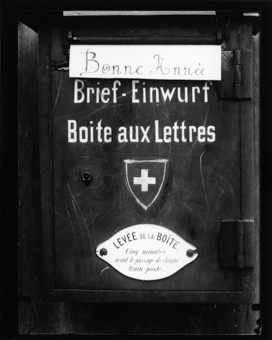 Bonne Année
Brief-Einwurf
Boite aux Lettres
LEVÉE DE LA BOÎTE
Cinq minutes
avant le passage de chaque
train-poste.